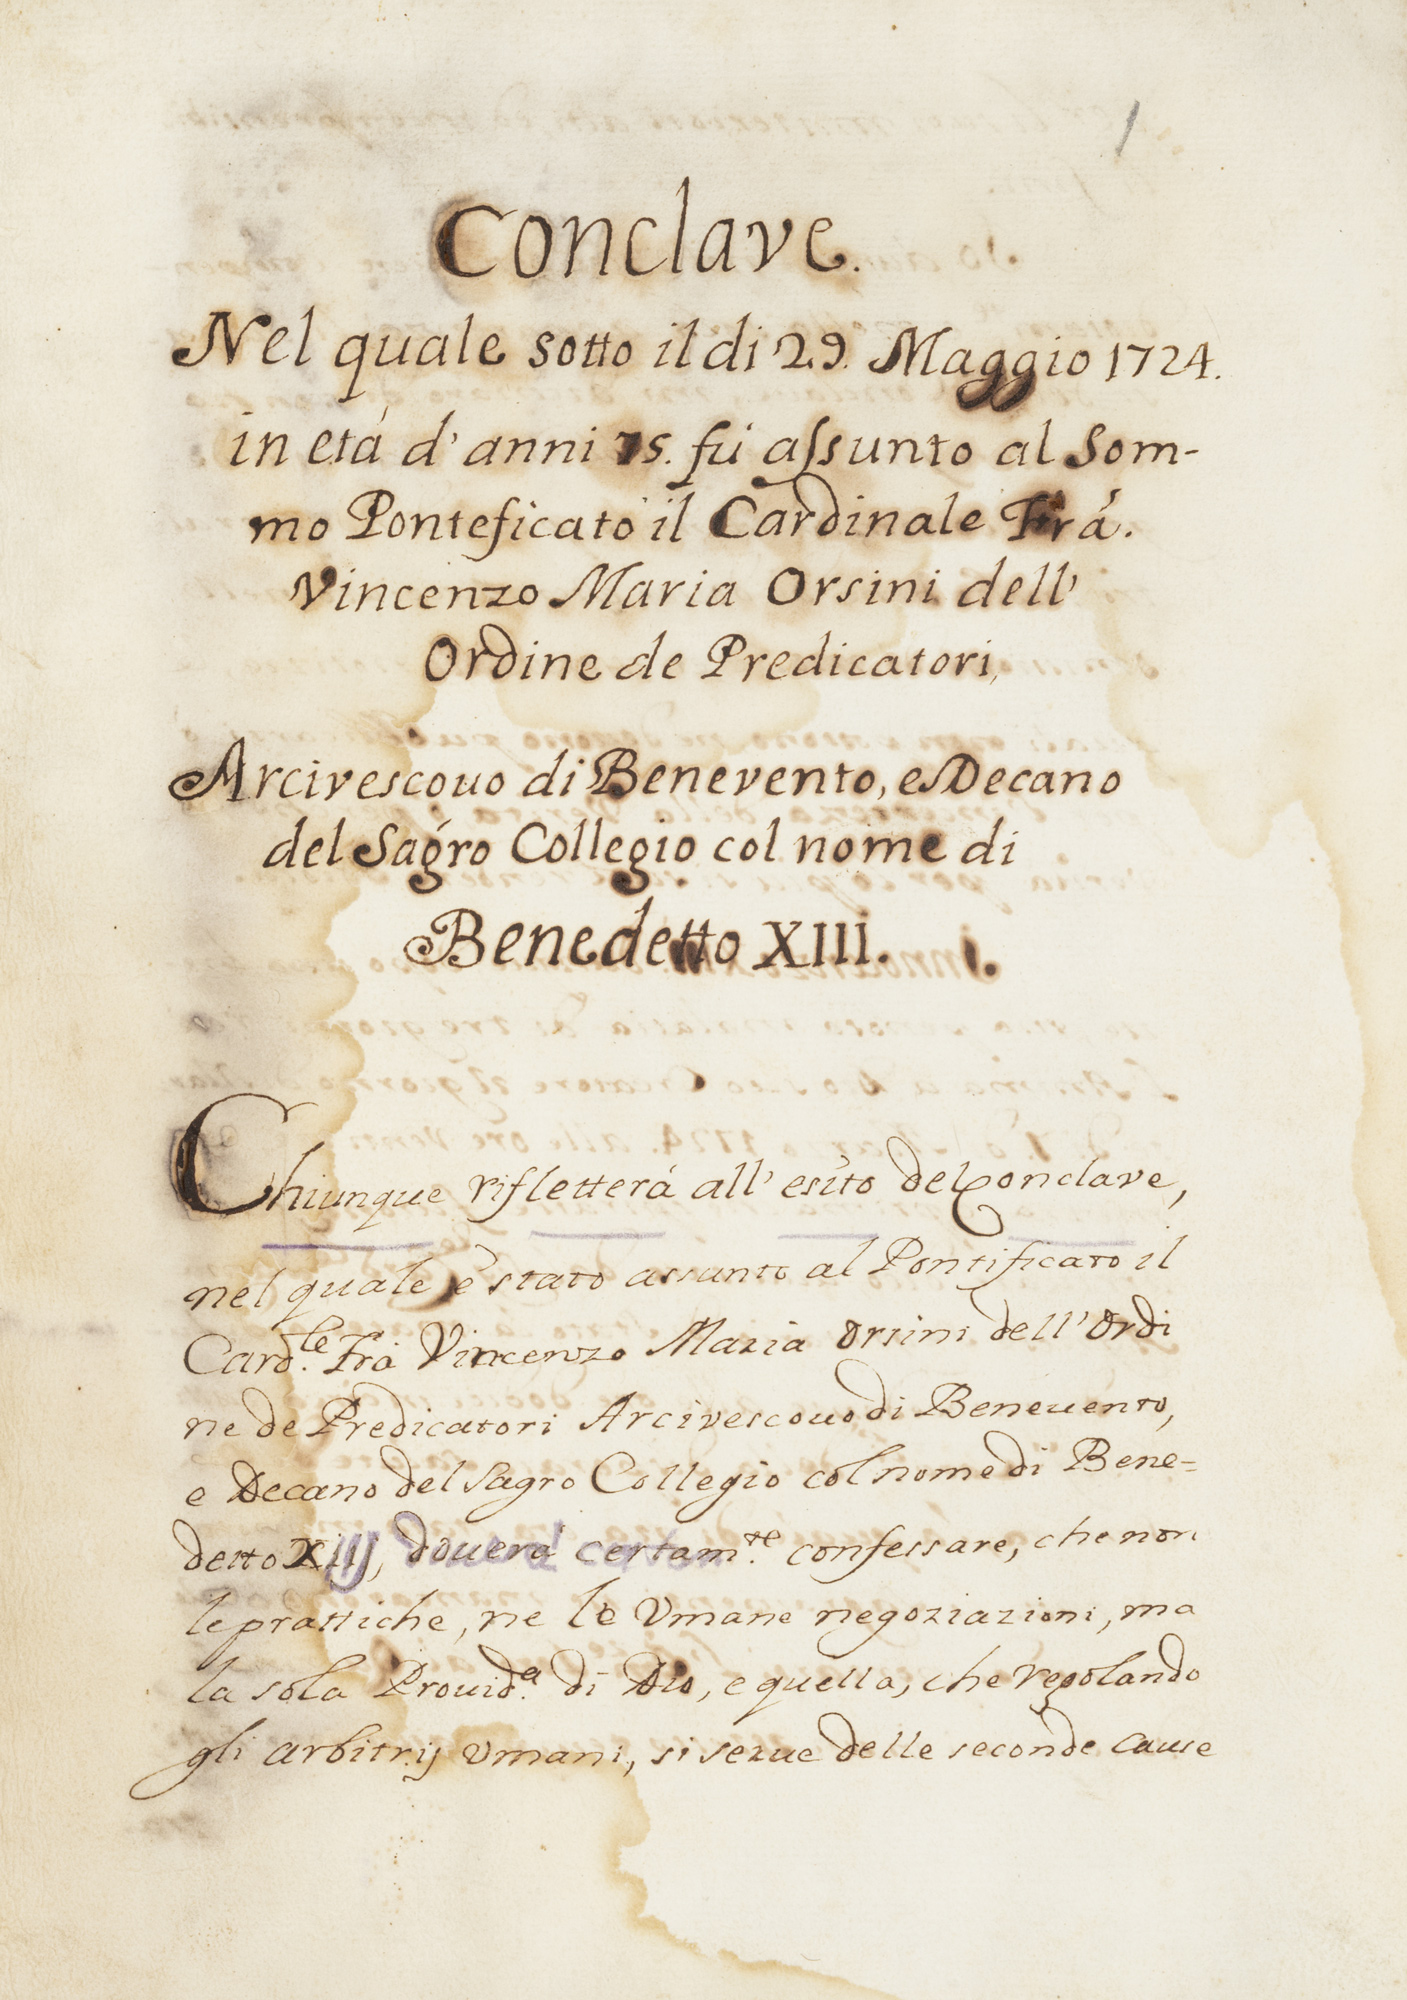 1
Conclave.
Nel quale sotto il di 29. Maggio 1724.
in etá d'anni 75. fú assunto al Som-
mo Ponteficato il Cardinale Frá.
Vincenzo Maria Orsini dell'
Ordine de Predicatori,
Arcivescouo di Benevento, e Decano
del Sagro Collegio col nome di
Benedetto XIII.
Chiunque rifletterá all' esito del Conclave,
nel quale è stato assunto al Pontificato il
Card.le Frá Vincenzo Maria Orsini dell' Ordi
ne de Predicatori Arcivescouo di Beneuento,
e Decano del Sagro Collegio col nome di Bene=
detto XIIJ, douerá certam.te confessare, che non
le prattiche, ne le Vmane negoziazioni, ma
la sola Prouid.a di Dio, e quella, che regolando
gli arbitrij Vmani, si serue delle seconde cause